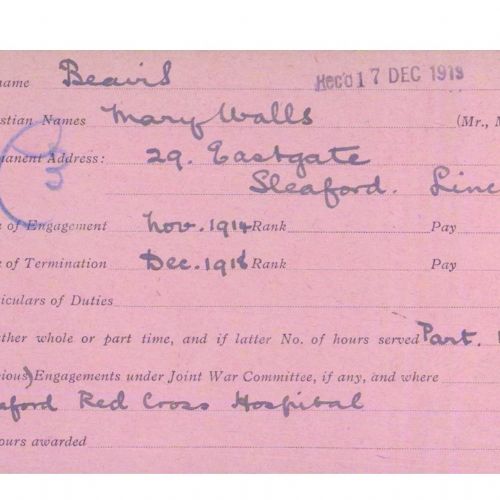 name Beavis Rec'd 17 DEC 1919
stian Names Mary Walls (Mr., M
manent Address: 29. Eastgate
3 Sleaford. Linc
e of Engagement Nov. 1914 Rank Pay
e of Termination Dec. 1918 Rank Pay
iculars of Duties
ether whole or part time, and if latter No. of hours served Part.
ious) Engagements under Joint War Committee, if any, and where
aford Red Cross Hospital
ours awarded